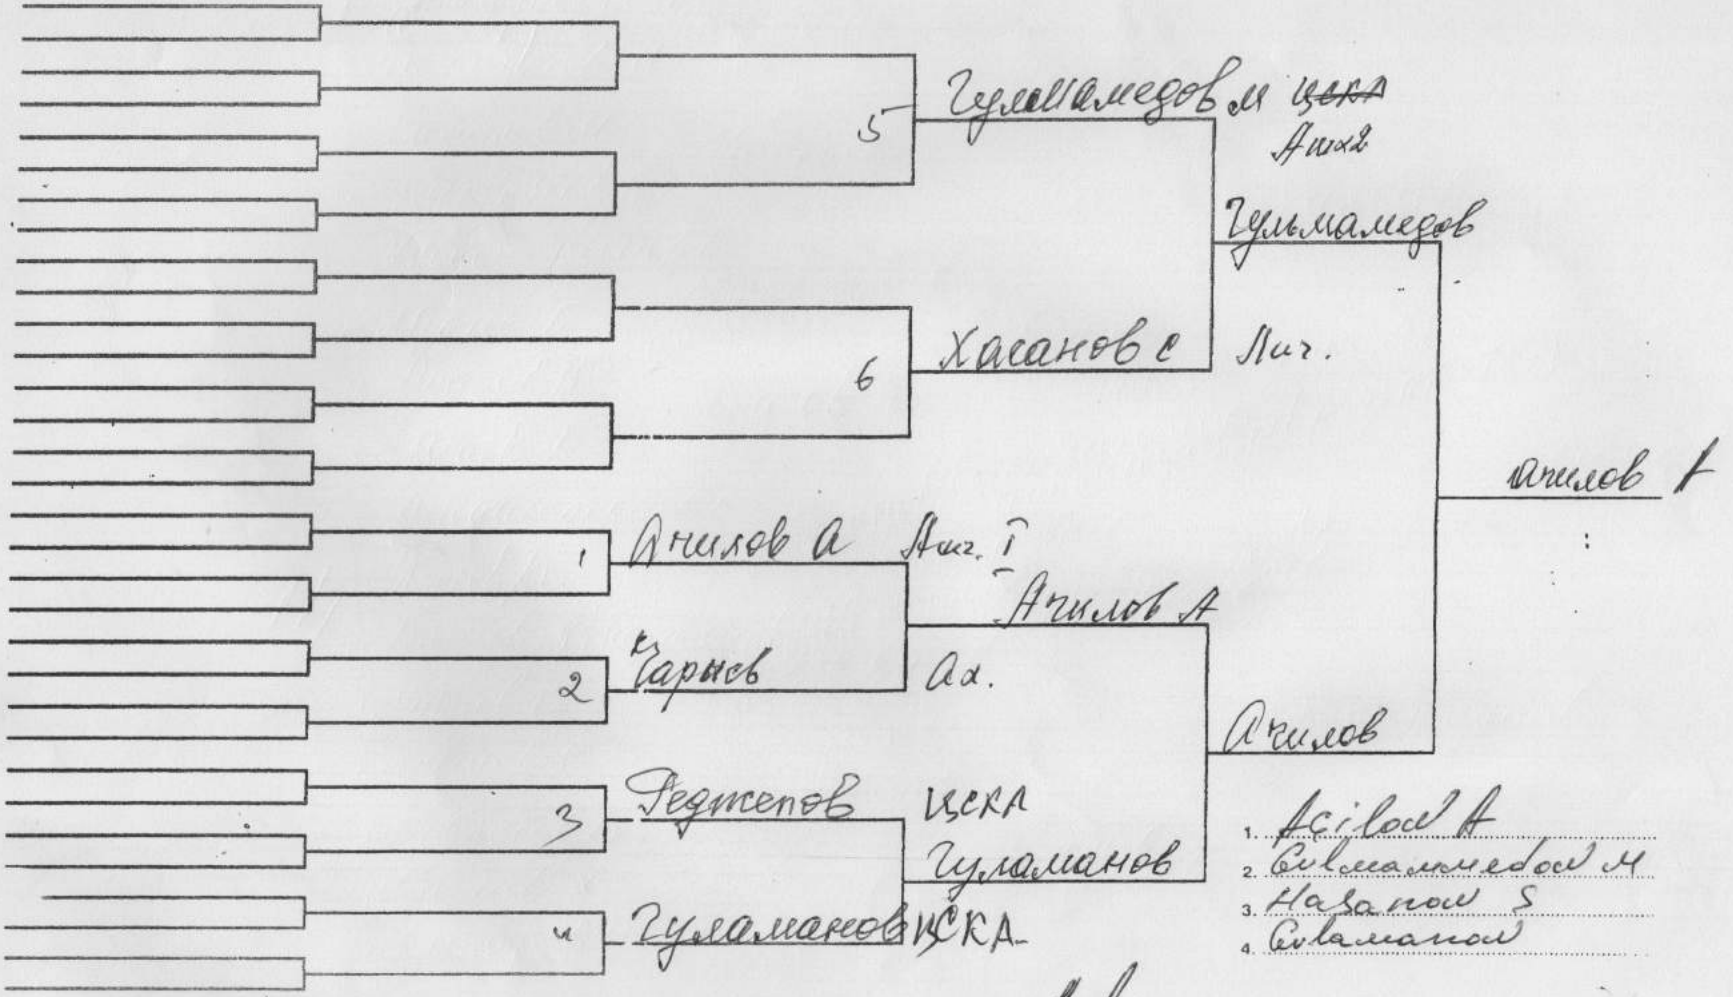 5 Гульмамедов М ЦСКА
Ашх2
Гульмамедов
6 Хасанов С Лич.
Ачилов А
1 Ачилов А I
Ачилов А
2 Чарыев Ах.
Ачилов
3 Реджепов ЦСКА
Гуламанов
4 Гуламанов ЦСКА
1. Açilow A
2. Gulmammedow M
3. Hasanow S
4. Gulamanow